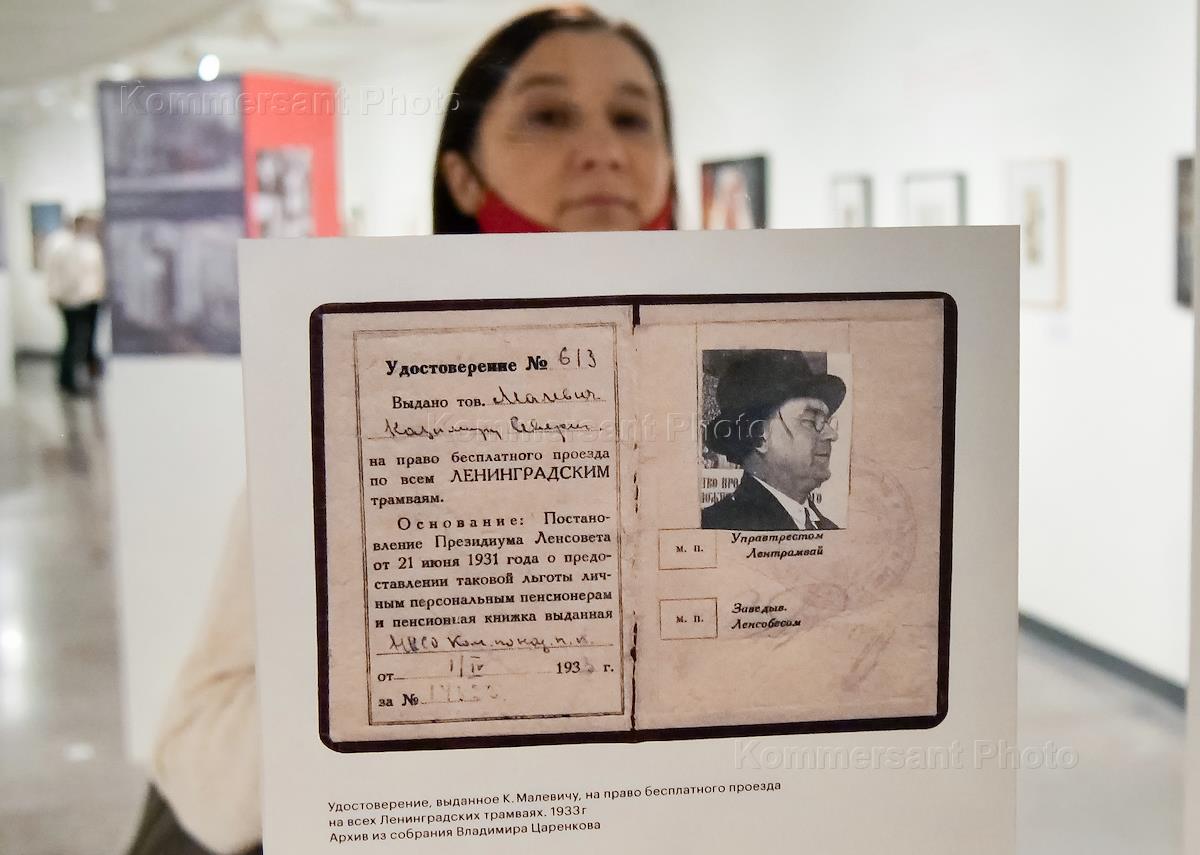 Kommersant Photo
Удостоверение № 613
Выдано тов. Малевич
Казимиру Северин.
на право бесплатного проезда
по всем ЛЕНИНГРАДСКИМ
трамваям.
Основание: Постано-
вление Президиума Ленсовета
от 21 июня 1931 года о предо-
ставлении таковой льготы лич-
ным персональным пенсионерам
и пенсионная книжка выданная
от 1/IV 1933 г.
за №
ТВО ПРО
м. п. Управтрестом
Лентрамвай
м. п. Заведыв.
Ленсобесом
Kommersant Photo
Kommersant Photo
Удостоверение, выданное К. Малевичу, на право бесплатного проезда
на всех Ленинградских трамваях. 1933 г
Архив из собрания Владимира Царенкова